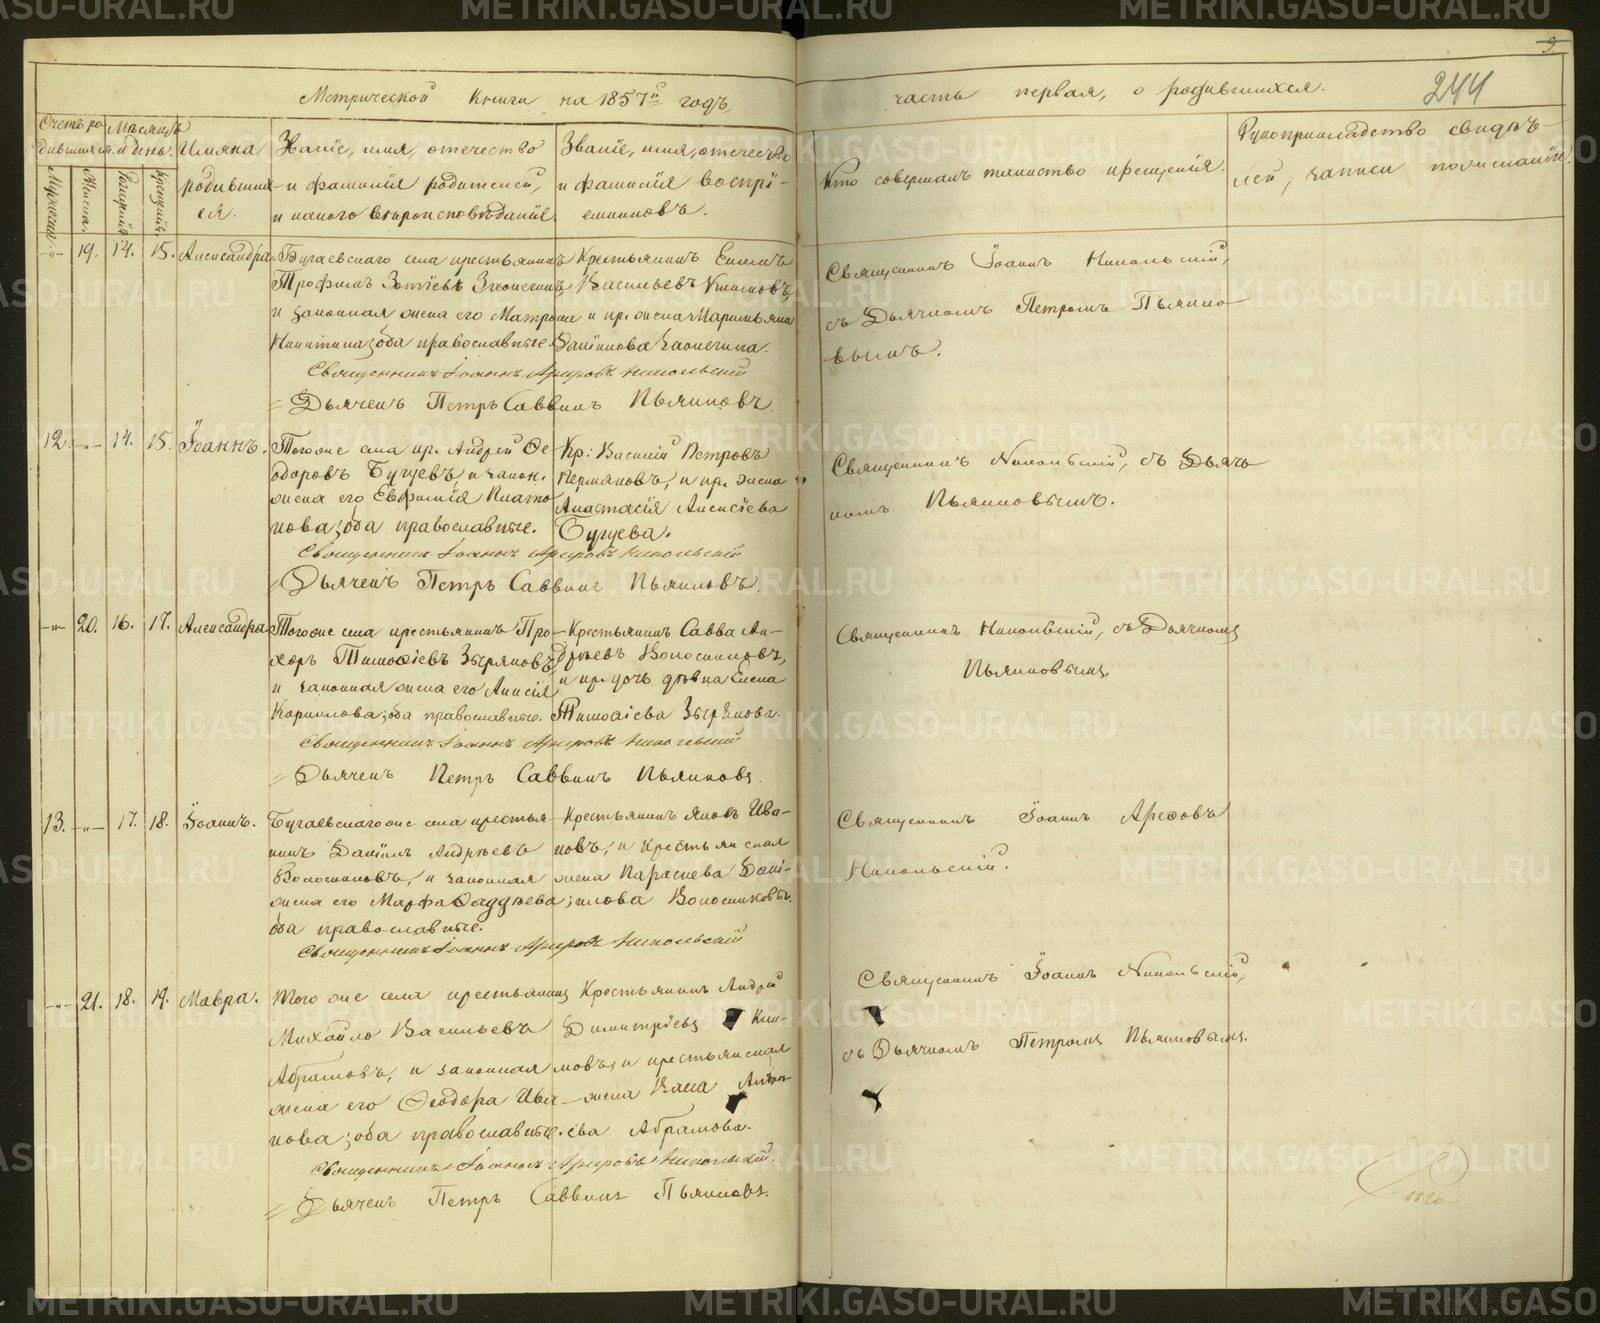 Метрической Книги на 1857й годъ,
часть первая, о родившихся.
9
244
Счетъ ро-
дившихся.
Мѣсяцъ
и день.
Мужеска.
Женска.
Рожденія
Крещенія.
Имяна
родивших-
ся.
Званіе, имя, отечество
и фамилія родителей,
и какого вѣроисповѣданія
Званіе, имя, отечество
и фамилія воспрі-
емниковъ.
Кто совершалъ таинство крещенія.
Рукоприкладство свидѣте-
лей, записи по желанію.
-"- 19. 14. 15. Александра.
Бугаевскаго села крестьянинъ
Трофимъ Зотіевъ
и законная жена его Матрона
Никитина; оба православные.
Крестьянинъ Емель
Васильевъ Климовъ,
и кр. жена Маримьяна
Священникъ Іоаннъ Арефовъ Никольскій
Дьячекъ Петръ Саввинъ Пьянковъ.
Священникъ Іоаннъ Никольскій,
съ Дьячкомъ Петромъ Пьянко-
вымъ.
12. -"- 14. 15. Іоаннъ.
Тогоже села кр. Андрей Ѳе-
доровъ Бугуевъ, и закон.
жена его Евфимія Плато-
нова; оба православные.
Кр: Василій Петровъ
Пермяковъ, и кр. жена
Анастасія Алексіева
Бугуева.
Священникъ Іоаннъ Арефовъ Никольскій
Дьячекъ Петръ Саввинъ Пьянковъ.
Священникъ Никольскій, съ Дьяч-
комъ Пьянковымъ.
-"- 20. 16. 17. Александра
Тогоже села крестьянинъ Про-
хоръ Тимоѳіевъ Зыряновъ,
и законная жена его Анисія
Кориллова; оба православные.
Крестьянинъ Савва Ан-
дрѣевъ Волосниковъ,
и кр. дочь дѣвка Елена
Тимоѳіева Зырянова.
Священникъ Іоаннъ Арефовъ Никольскій
Дьячекъ Петръ Саввинъ Пьянковъ.
Священникъ Никольскій, съ Дьячкомъ
Пьянковымъ.
13. -"- 17. 18. Іоаннъ.
Бугаевскагоже села крестья-
нинъ Даніилъ Андрѣевъ
Волосниковъ, и законная
жена его Марфа Ѳаддѣева;
оба православные.
Крестьянинъ Яковъ Ива-
новъ, и крестьянская
жена Параскева Дані-
илова Волосникова.
Священникъ Іоаннъ Арефовъ Никольскій
Священникъ Іоаннъ Арефовъ
Никольскій.
-"- 21. 18. 19. Мавра.
Того же села крестьянинъ
Михайло Васильевъ
Абрамовъ, и законная
жена его Ѳеодора Ива-
нова; оба православные.
Крестьянинъ Андрей
Димитріевъ Кли-
мовъ, и крестьянская
жена
ева Абрамова.
Священникъ Іоаннъ Арефовъ Никольскій.
Дьячекъ Петръ Саввинъ Пьянковъ.
Священникъ Іоаннъ Никольскій,
съ Дьячкомъ Петромъ Пьянковымъ.
METRIKI.GASO-URAL.RU